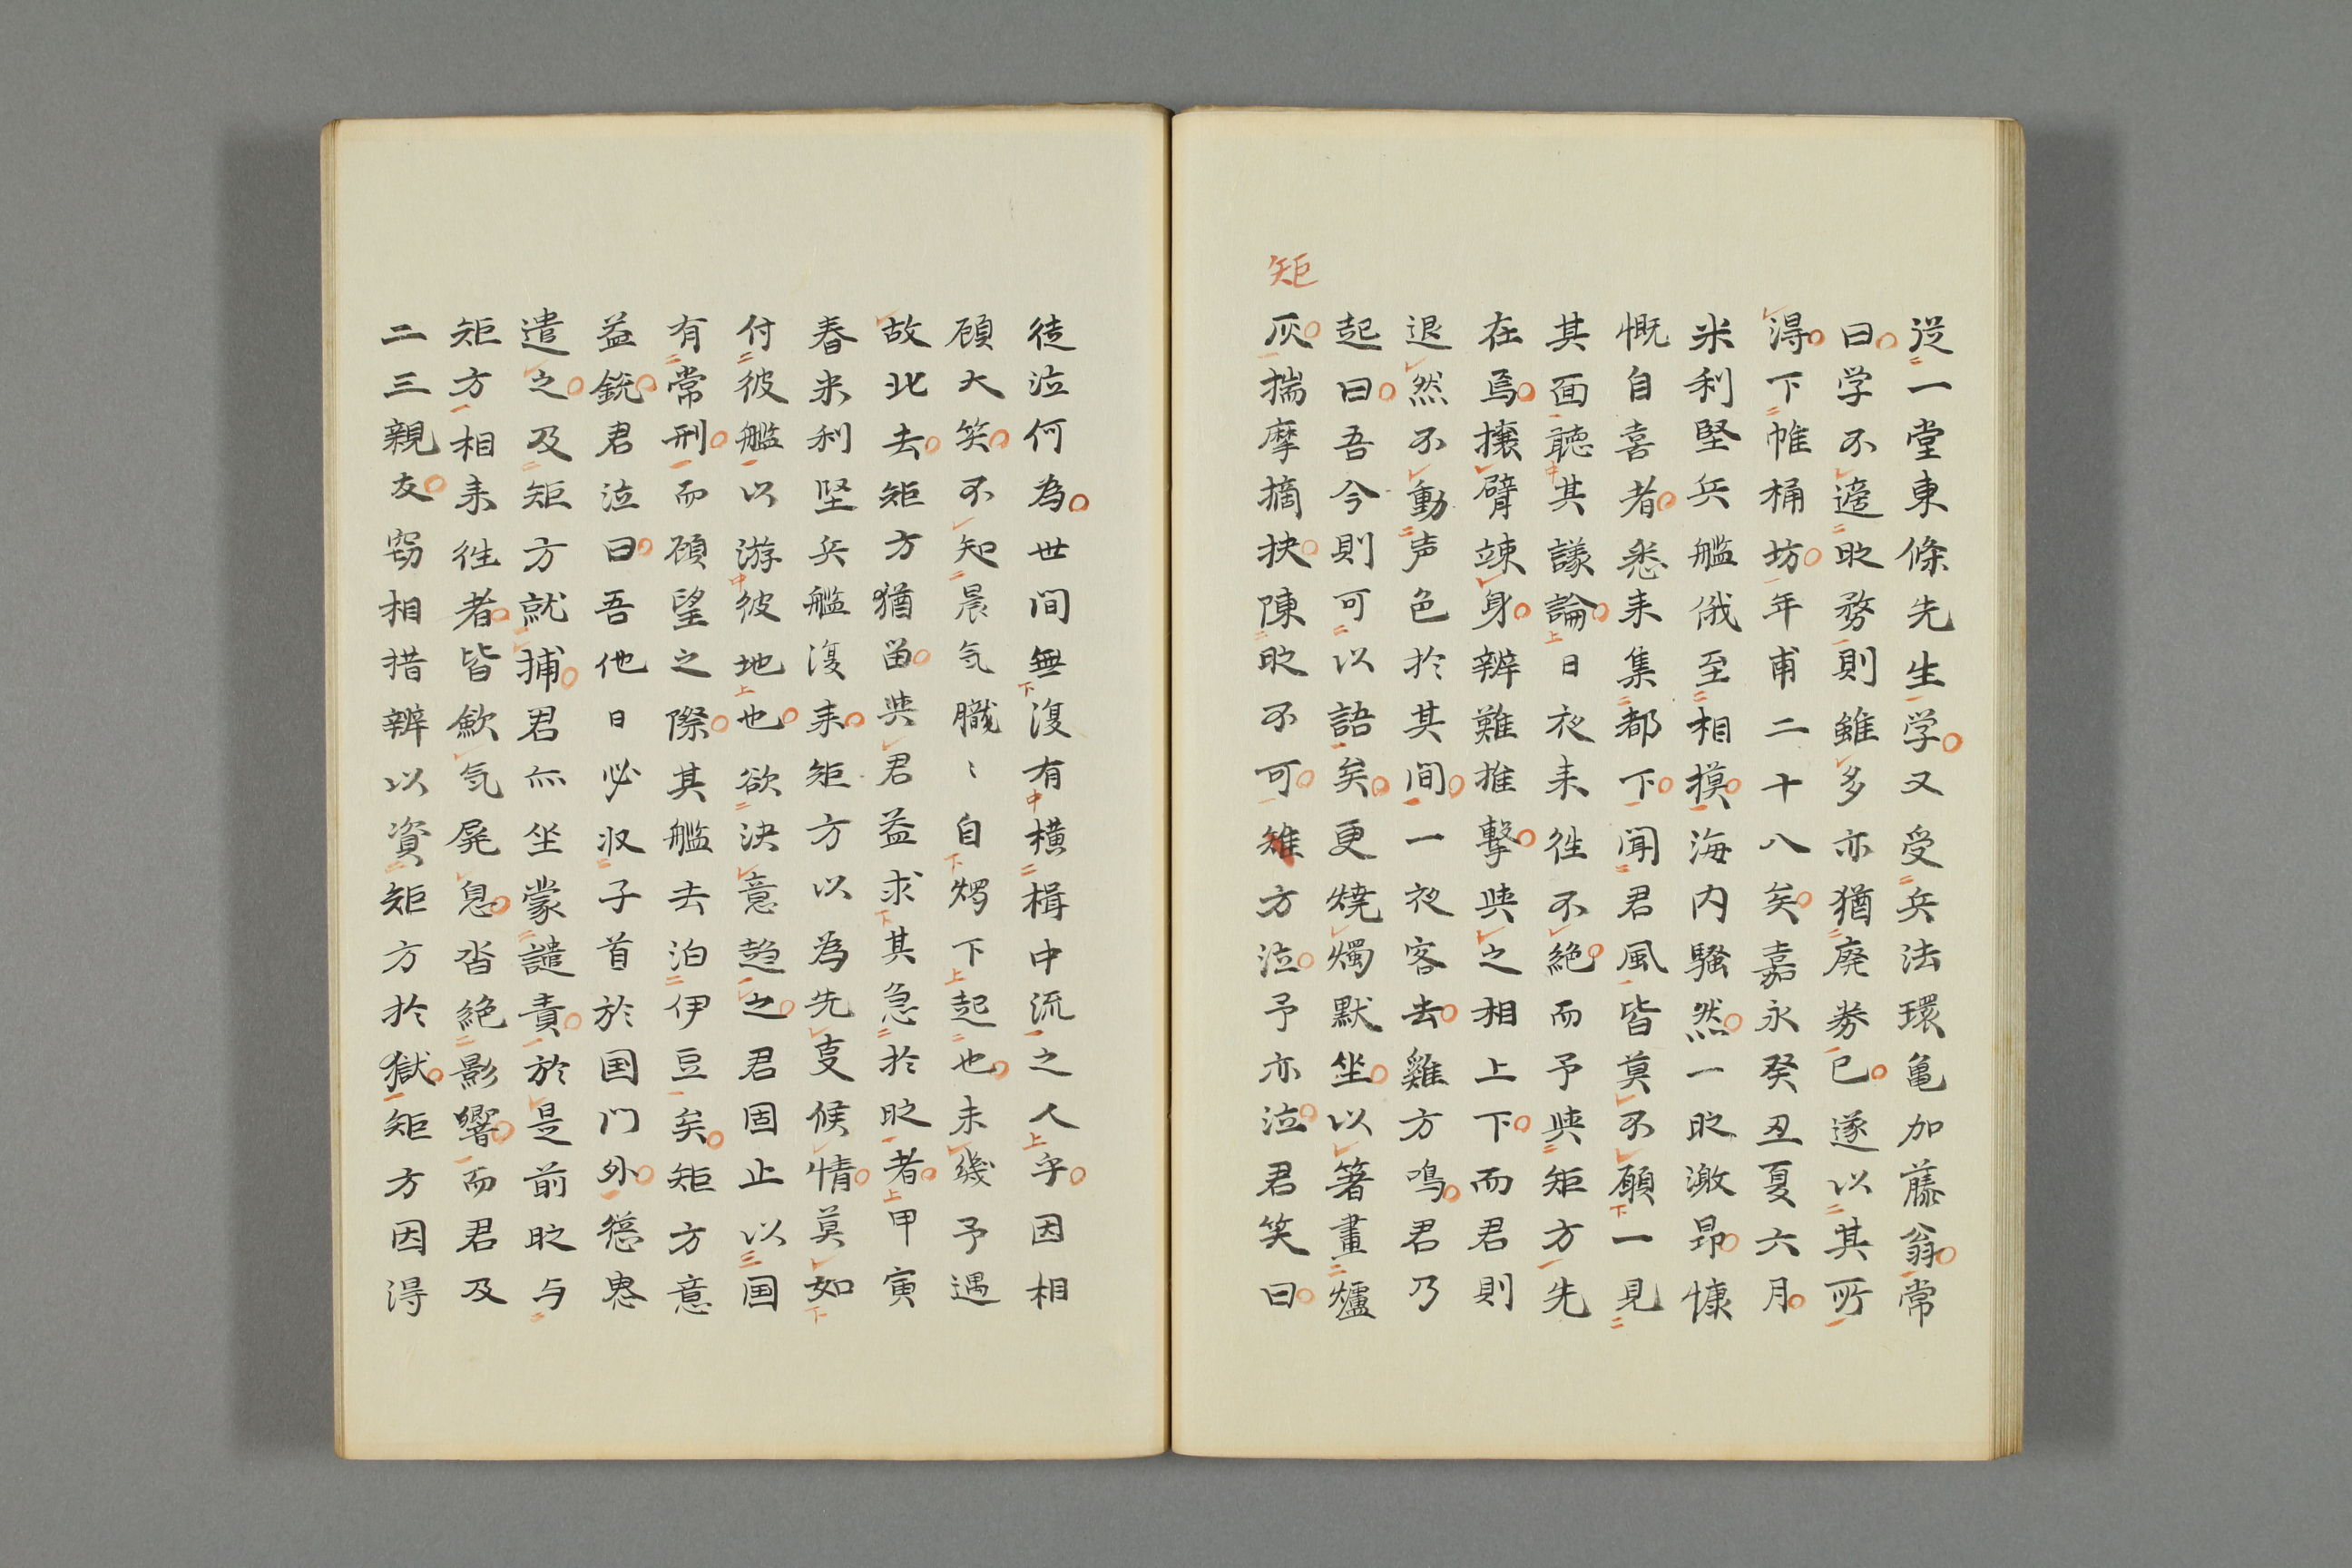 矩
従一堂東條先生学又受兵法環亀加藤翁常
曰学不適時務則雖多亦猶廃券已遂以其所
得下帷桶坊年甫二十八矣嘉永癸丑夏六月
米利堅兵艦俄至相摸海内騒然一時激昻慷
慨自喜者悉来集都下聞君風皆莫不願一見
其面聴其議論日夜来往不絶而予與矩方先
在焉攘臂竦身辨難推撃與之相上下而君則
退然不動声色於其間一夜客去雞方鳴君乃
起曰吾今則可以語矣更焼燭默坐以箸畫爐
灰揣摩摘抉陳時不可雉方泣予亦泣君笑曰
徒泣何為世間無復有横楫中流之人乎因相
顧大笑不知晨気朧〻自燭下起也未幾予遇
故北去矩方猶留與君益求其急於時者甲寅
春米利堅兵艦復来矩方以為先叓候情莫如
付彼艦以游彼地也欲決意趋之君固止以国
有常刑而顧望之際其艦去泊伊豆矣矩方意
益鋭君泣曰吾他日必収子首於国門外慫恿
遣之及矩方就捕君亦坐蒙譴責於是前時与
矩方相来往者皆歛気屏息沓絶影響而君及
二三親友窃相措辨以資矩方於獄矩方因得